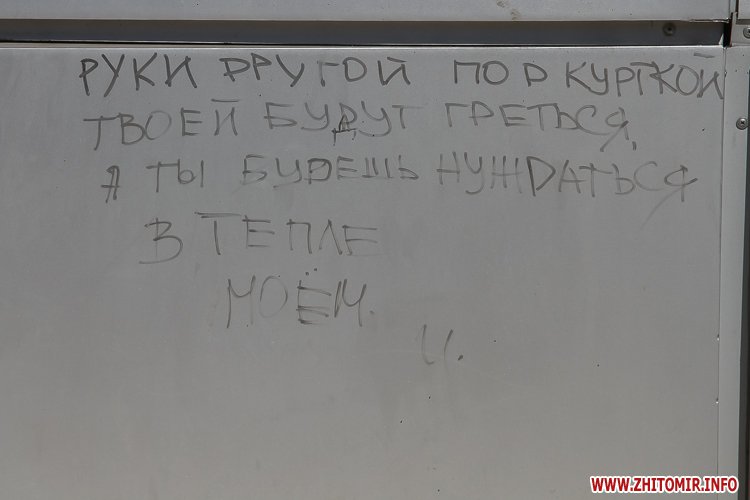 РУКИ ДРУГОЙ ПОД КУРТКОЙ
ТВОЕЙ БУДУТ ГРЕТЬСЯ,
А ТЫ БУДЕШЬ НУЖДАТЬСЯ
В ТЕПЛЕ
МОЁМ.
И.
WWW.ZHITOMIR.INFO